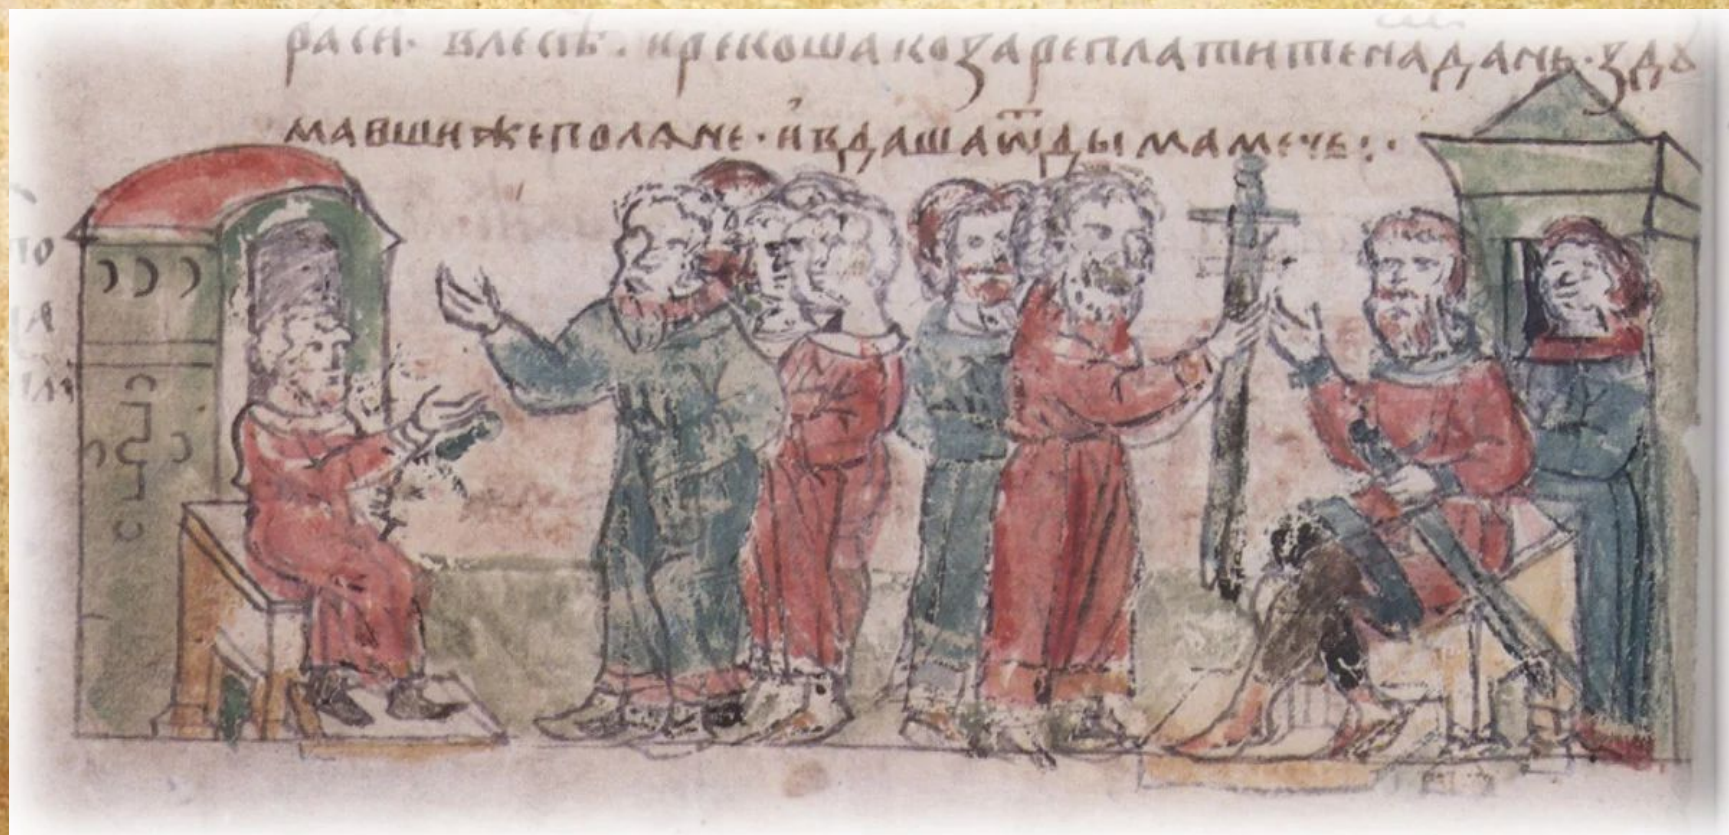 раси· влесѣ· ирекошакозареплатитенадань·здꙋ
мавшижеполѧне·ивдашаѿдымамече:·